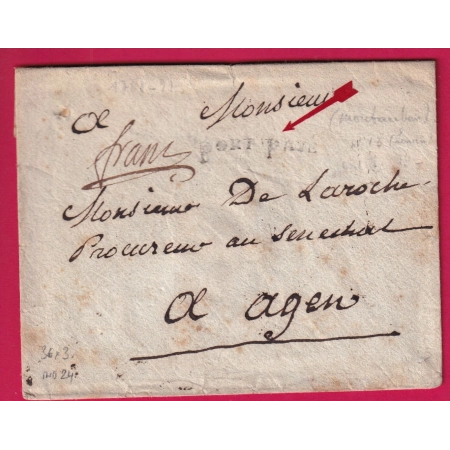 A Monsieur
franc
PORT PAYÉ
(Montauban)
Monsieur De Laroche
Procureur au senechal
A agen
36 x 3